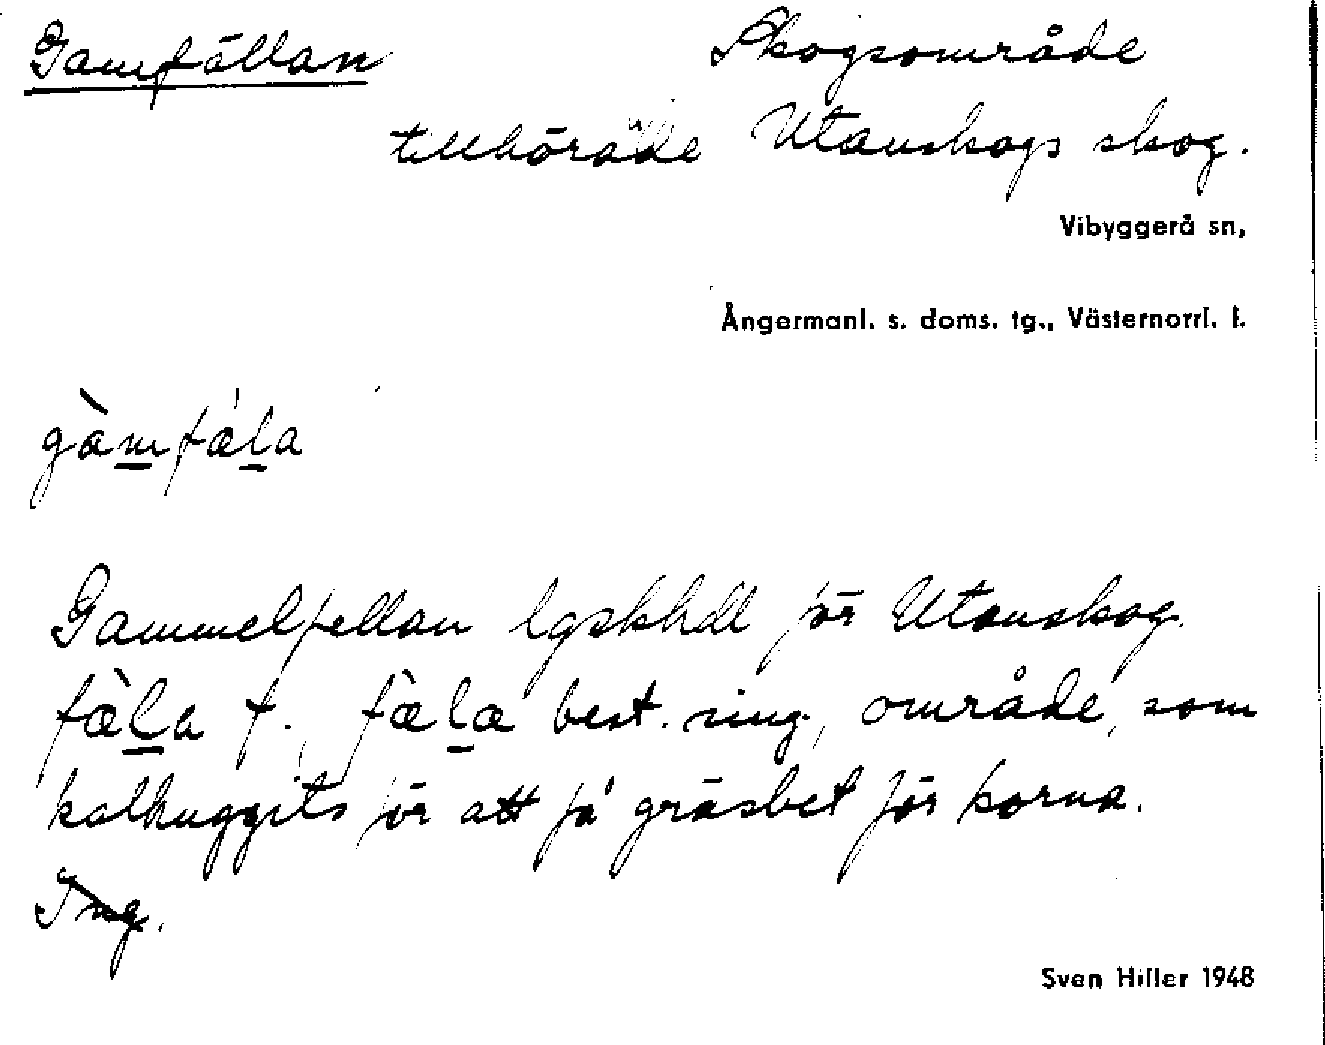 Gamfällan Skogsområde
tillhörade Utanskogs skog.
Vibyggerå sn,
Ångermanl. s. doms. tg., Västernorrl. l.
gàmfǽla
Gammelfellan lgskhdl för Utanskog.
fæ̀la f., fæ̀la best. sing., område, som
kalhuggits för att få gräsbet för korna.
Ing.
Sven Hiller 1948